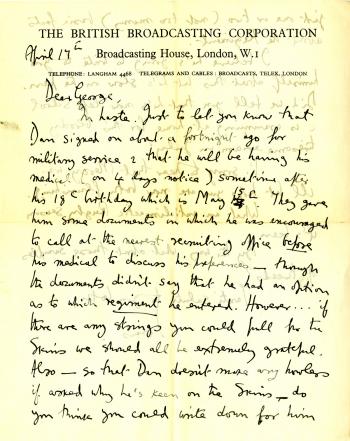 THE BRITISH BROADCASTING CORPORATION
Broadcasting House, London, W.1
April 17th
TELEPHONE: LANGHAM 4468 TELEGRAMS AND CABLES: BROADCASTS, TELEX, LONDON
Dear George,
In haste. Just to let you know that
Dan signed on about a fortnight ago for
military service & that he will be having his
medical (on 4 days notice) sometime after
his 18th birthday which is May 15th. They gave
him some documents in which he was encouraged
to call at the nearest recruiting office before
his medical to discuss his preferences — though
the documents didn't say that he had an option
as to which regiment he entered. However... if
there are any strings you could pull for the
Skins we should all be extremely grateful.
Also — so that Dan doesn't make any howlers
if asked why he's keen on the Skins — do
you think you could write down for him